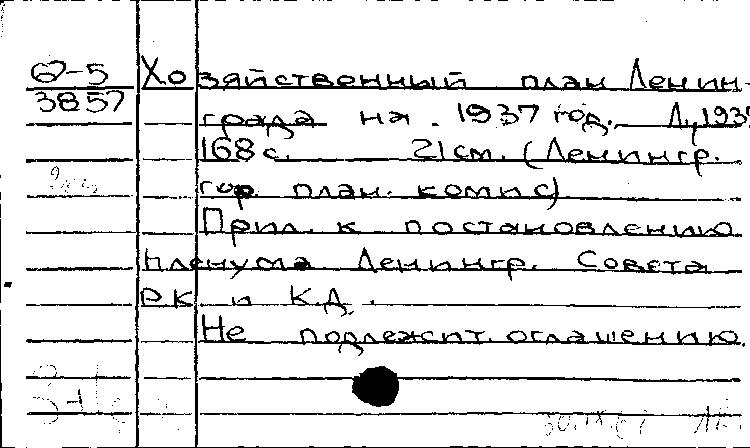 67-5 Хозяйственный план Ленин-
3857 града на 1937 год. Л., 193
168 с. 21 см. (Ленингр.
гор. план. комис)
Прил. к постановлению
пленума Ленингр. Совета
РК и К.Д.
Не подлежит оглашению.